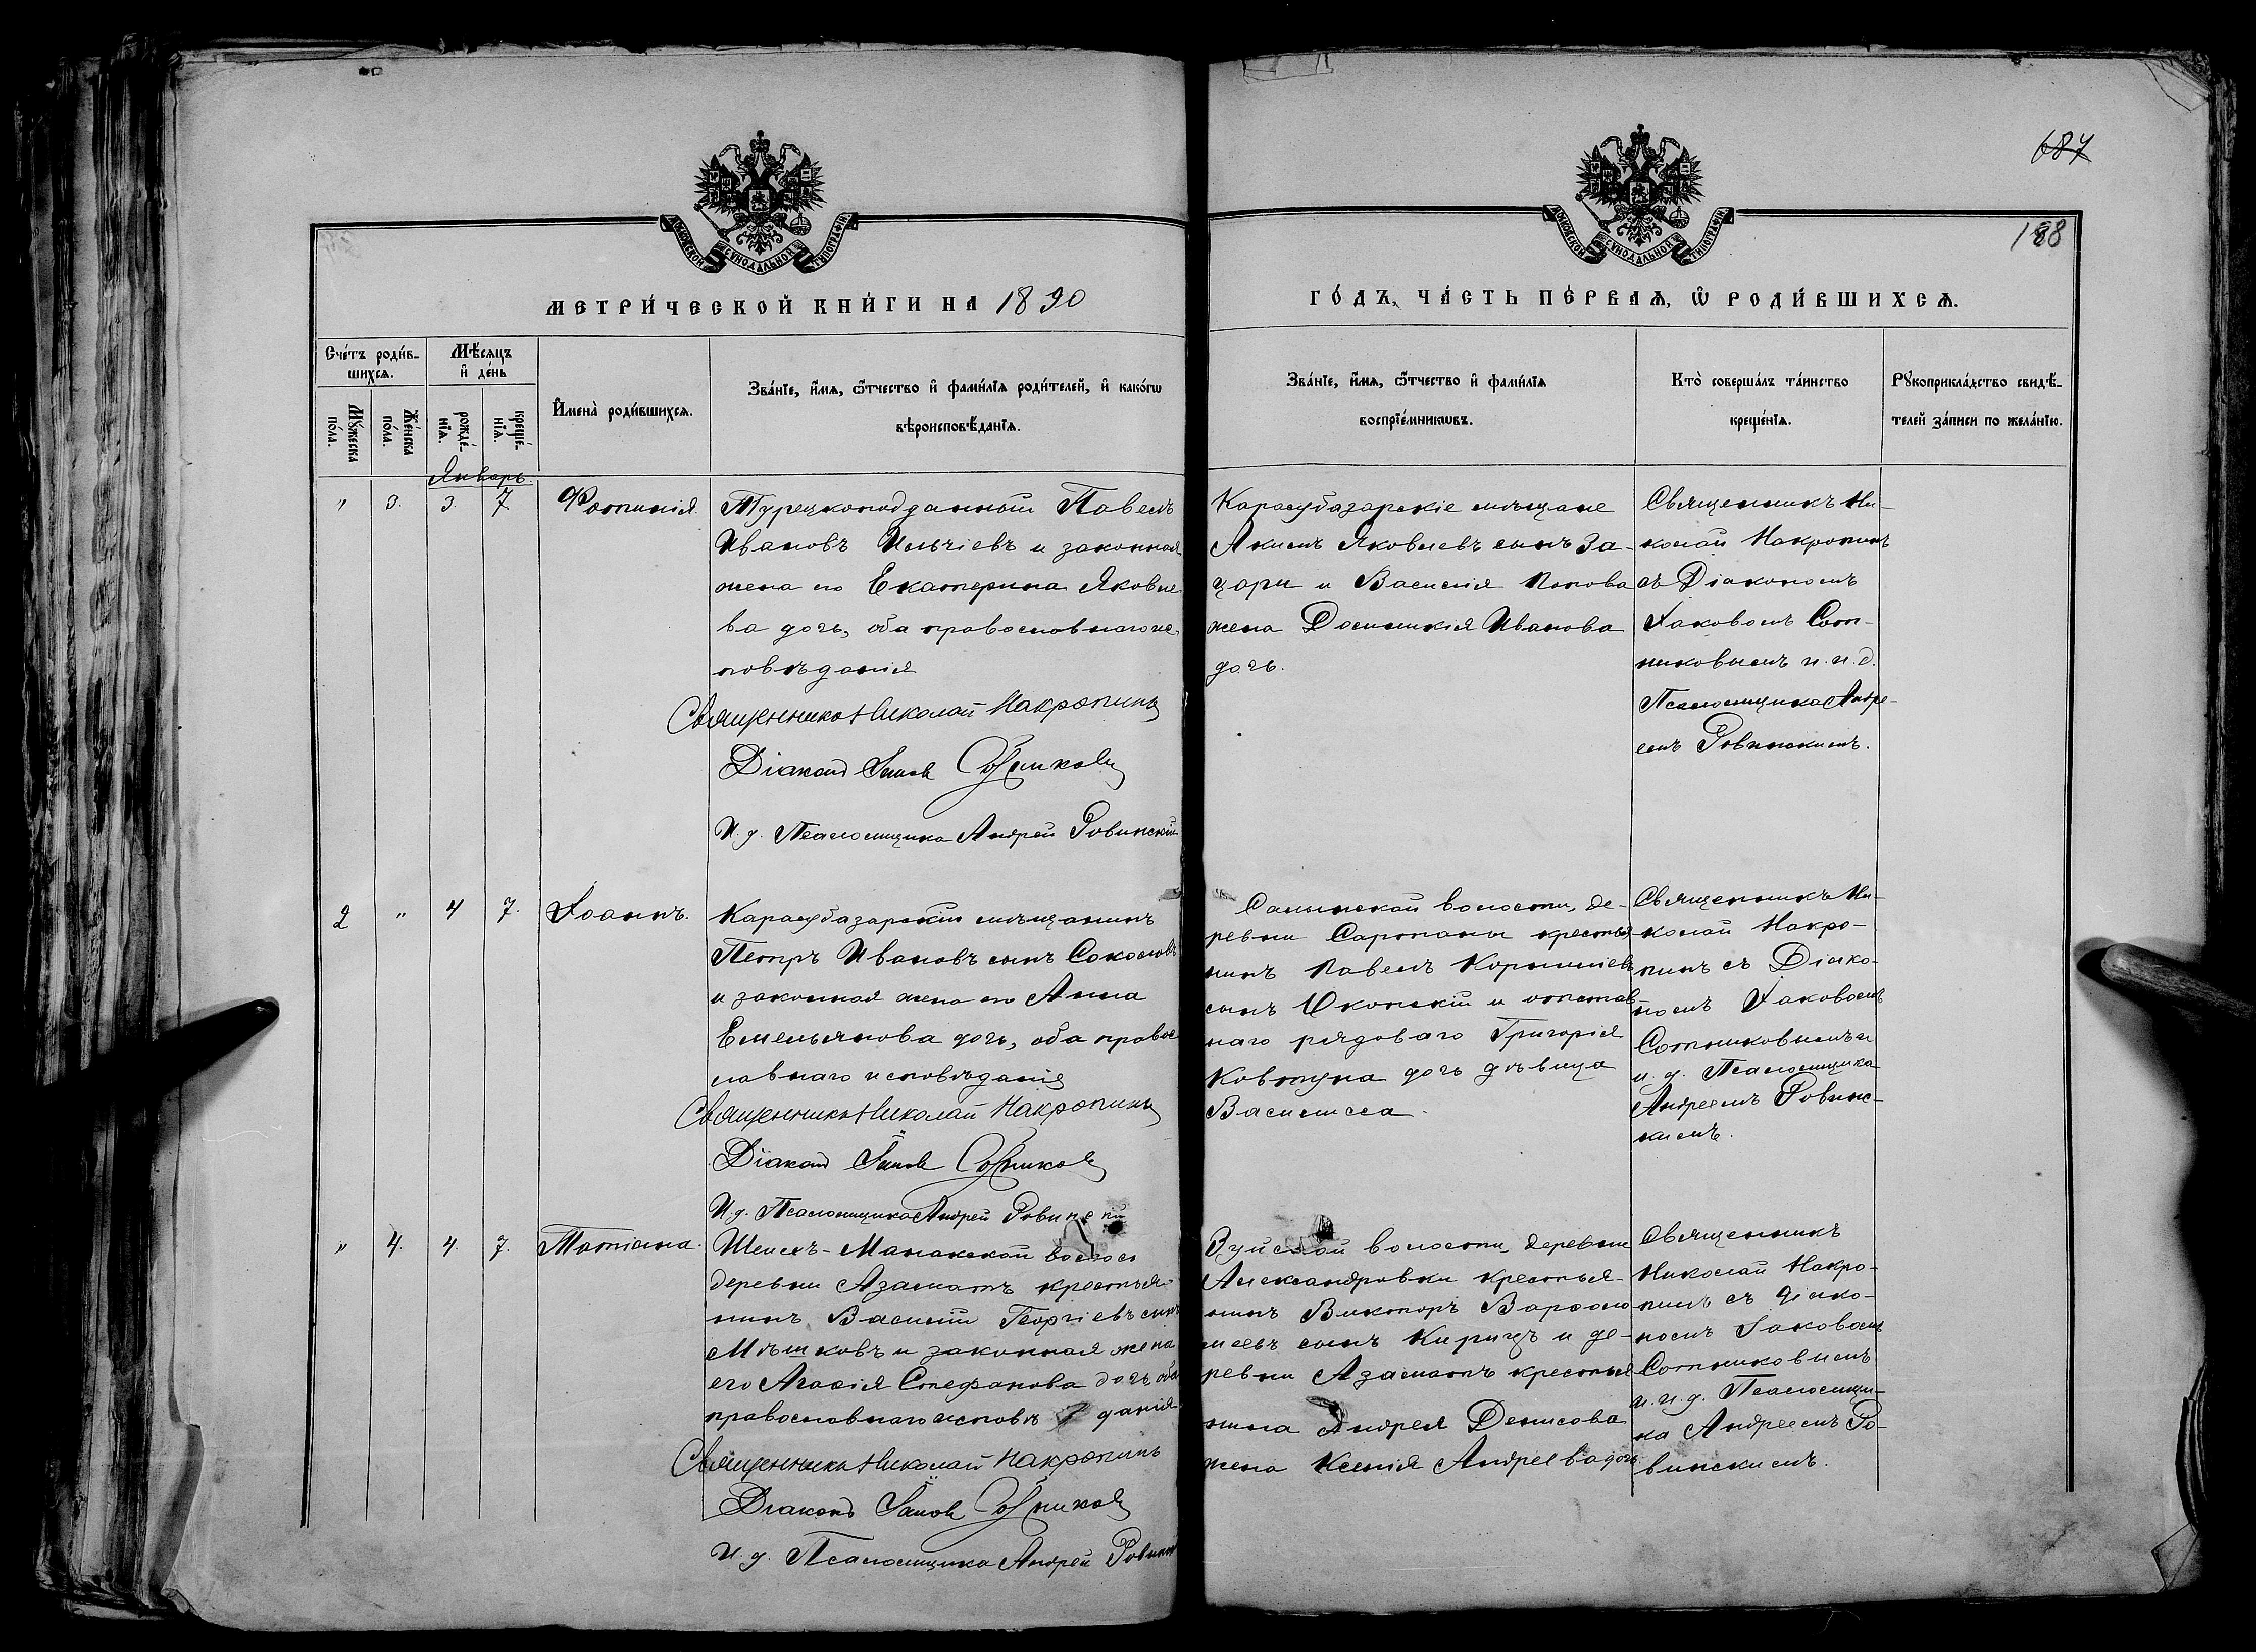 687
188
МОСКОВСКОЙ СѴНОДАЛЬНОЙ ТИПОГРАФІИ
МОСКОВСКОЙ СѴНОДАЛЬНОЙ ТИПОГРАФІИ
МЕТРИ́ЧЕСКОЙ КНИ́ГИ НА 1890
ГО́ДЪ, ЧА́СТЬ ПЕ́РВАѦ, Ѽ РОДИ́ВШИХСѦ.
Сче́тъ роди́в-
шихсѧ.
Мꙋ́жеска
по́ла.
Же́нска
по́ла.
Мѣ́сѧцъ
и҆ де́нь
рожде́-
нїѧ.
креще́-
нїѧ.
И҆мена̀ роди́вшихсѧ.
Зва́нїе, и҆́мѧ, ѻ҆́тчество и҆ фами́лїѧ роди́телей, и҆ како́гѡ
вѣроисповѣ́данїѧ.
Зва́нїе, и҆́мѧ, ѻ҆́тчество и҆ фами́лїѧ
воспрїе́мникѡвъ.
Кто̀ соверша́лъ та́инство
креще́нїѧ.
Рꙋкоприкла́дство свидѣ́-
телей за́писи по жела́нїю.
Январь.
" 3. 3. 7. Фотинія.
Турецкоподданный Павелъ
Ивановъ Ильчіевъ и законная
жена его Екатерина Яковле-
ва дочь, оба православнаго ис-
повѣданія
Священникъ Николай Макропинъ
Діаконъ Іаковъ Сотниковъ
И. д. Псаломщика Андрей Ровинскій
Карасубазарскіе мѣщане
Акимъ Яковлевъ сынъ За-
хари и Василія Попова
жена Домникія Иванова
дочь.
Священникъ Ни-
колай Макропинъ
съ Діакономъ
Іаковомъ Сот-
никовымъ и и. д.
Псаломщика Андре-
емъ Ровинскимъ.
2 " 4 7. Іоаннъ.
Карасубазарскій мѣщанинъ
Петръ Ивановъ сынъ Соколовъ
и законная жена его Анна
Емельянова дочь, оба правос-
лавнаго исповѣданія
Священникъ Николай Макропинъ
Діаконъ Іаковъ Сотниковъ
И. д. Псаломщика Андрей Ровинскій
Салынской волости, де-
ревни Сартаны крестья-
нинъ Павелъ
сынъ и отстав-
наго рядоваго Григорія
Ковтуна дочь дѣвица
Василисса.
Священникъ Ни-
колай Макро-
пинъ съ Діако-
номъ Іаковомъ
Сотниковымъ и
и. д. Псаломщика
Андреемъ Ровинс-
кимъ.
" 4. 4. 7. Татіана.
Шейхъ-Манакской волос.
деревни Азаматъ крестья-
нинъ Василій Георгіевъ сынъ
Мѣшковъ и законная жена
его Агаѳія Стефанова дочь оба
православнаго исповѣданія
Священникъ Николай Макропинъ
Діаконъ Іаковъ Сотниковъ
И. д. Псаломщика Андрей Ровинск
Зуйской волости, деревни
Александровки крестья-
нинъ Викторъ Варѳоло-
меевъ сынъ Кирицъ и де-
ревни Азаматъ крестья-
нина Андрея Денисова
жена Ксенія Андреева дочь.
Священникъ
Николай Макро-
пинъ съ Діако-
номъ Іаковомъ
Сотниковымъ
и и. д. Псаломщи-
ка Андреемъ Ро-
винскимъ.